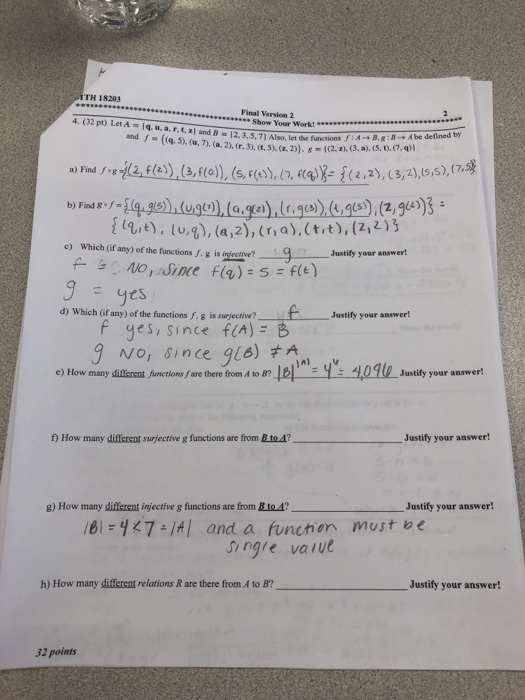 TTH 18203
Final Version 2
2
Show Your Work!
4. (32 pt) Let A = {q, u, a, r, t, z} and B = {2, 3, 5, 7} Also, let the functions f : A → B, g : B → A be defined by
and f = {(q, 5), (u, 7), (a, 2), (r, 3), (t, 5), (z, 2)}, g = {(2, z), (3, a), (5, t), (7, q)}
a) Find f∘g = {(2, f(z)), (3, f(a)), (5, f(t)), (7, f(q))} = {(2,2), (3,2), (5,5), (7,5)}
b) Find g∘f = {(q, g(5)), (u, g(7)), (a, g(2)), (r, g(3)), (t, g(5)), (z, g(2))} =
{(q,t), (u,q), (a,z), (r,a), (t,t), (z,z)}
c) Which (if any) of the functions f, g is injective? g Justify your answer!
f = NO, since f(q) = 5 = f(t)
g = yes
d) Which (if any) of the functions f, g is surjective? f Justify your answer!
f yes, since f(A) = B
g NO, since g(B) ≠ A
e) How many different functions f are there from A to B? |B|^|A| = 4^6 = 4,096 Justify your answer!
f) How many different surjective g functions are from B to A? Justify your answer!
g) How many different injective g functions are from B to A? Justify your answer!
|B| = 4 < 7 = |A| and a function must be
single value
h) How many different relations R are there from A to B? Justify your answer!
32 points